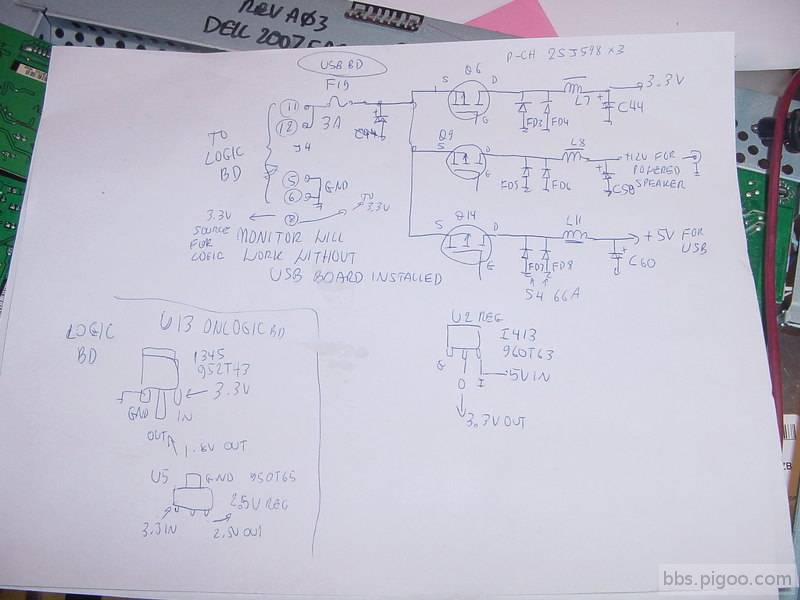 REV A03
DELL 2007FP
USB BD
P-CH 2SJ598 x3
F19
3A
11
12
J4
TO
LOGIC
BD
5
6
GND
8
TO
3.3V
3.3V
SOURCE
FOR
LOGIC
MONITOR WILL
WORK WITHOUT
USB BOARD INSTALLED
Q6
S
D
G
FD3
FD4
L7
+
C44
3.3V
Q9
S
D
G
FD5
FD6
L8
+
C58
+12V FOR
POWERED
SPEAKER
Q14
S
D
G
FD7
FD8
L11
+
C60
+5V FOR
USB
S4 66A
LOGIC
BD
U13 ON LOGIC BD
1345
952T43
3.3V
GND
IN
OUT
1.8V OUT
U5
GND
950T65
2.5V REG
3.3 IN
2.5V OUT
U2 REG
I413
960T63
G
O
I
5V IN
3.3V OUT
bbs.pigoo.com